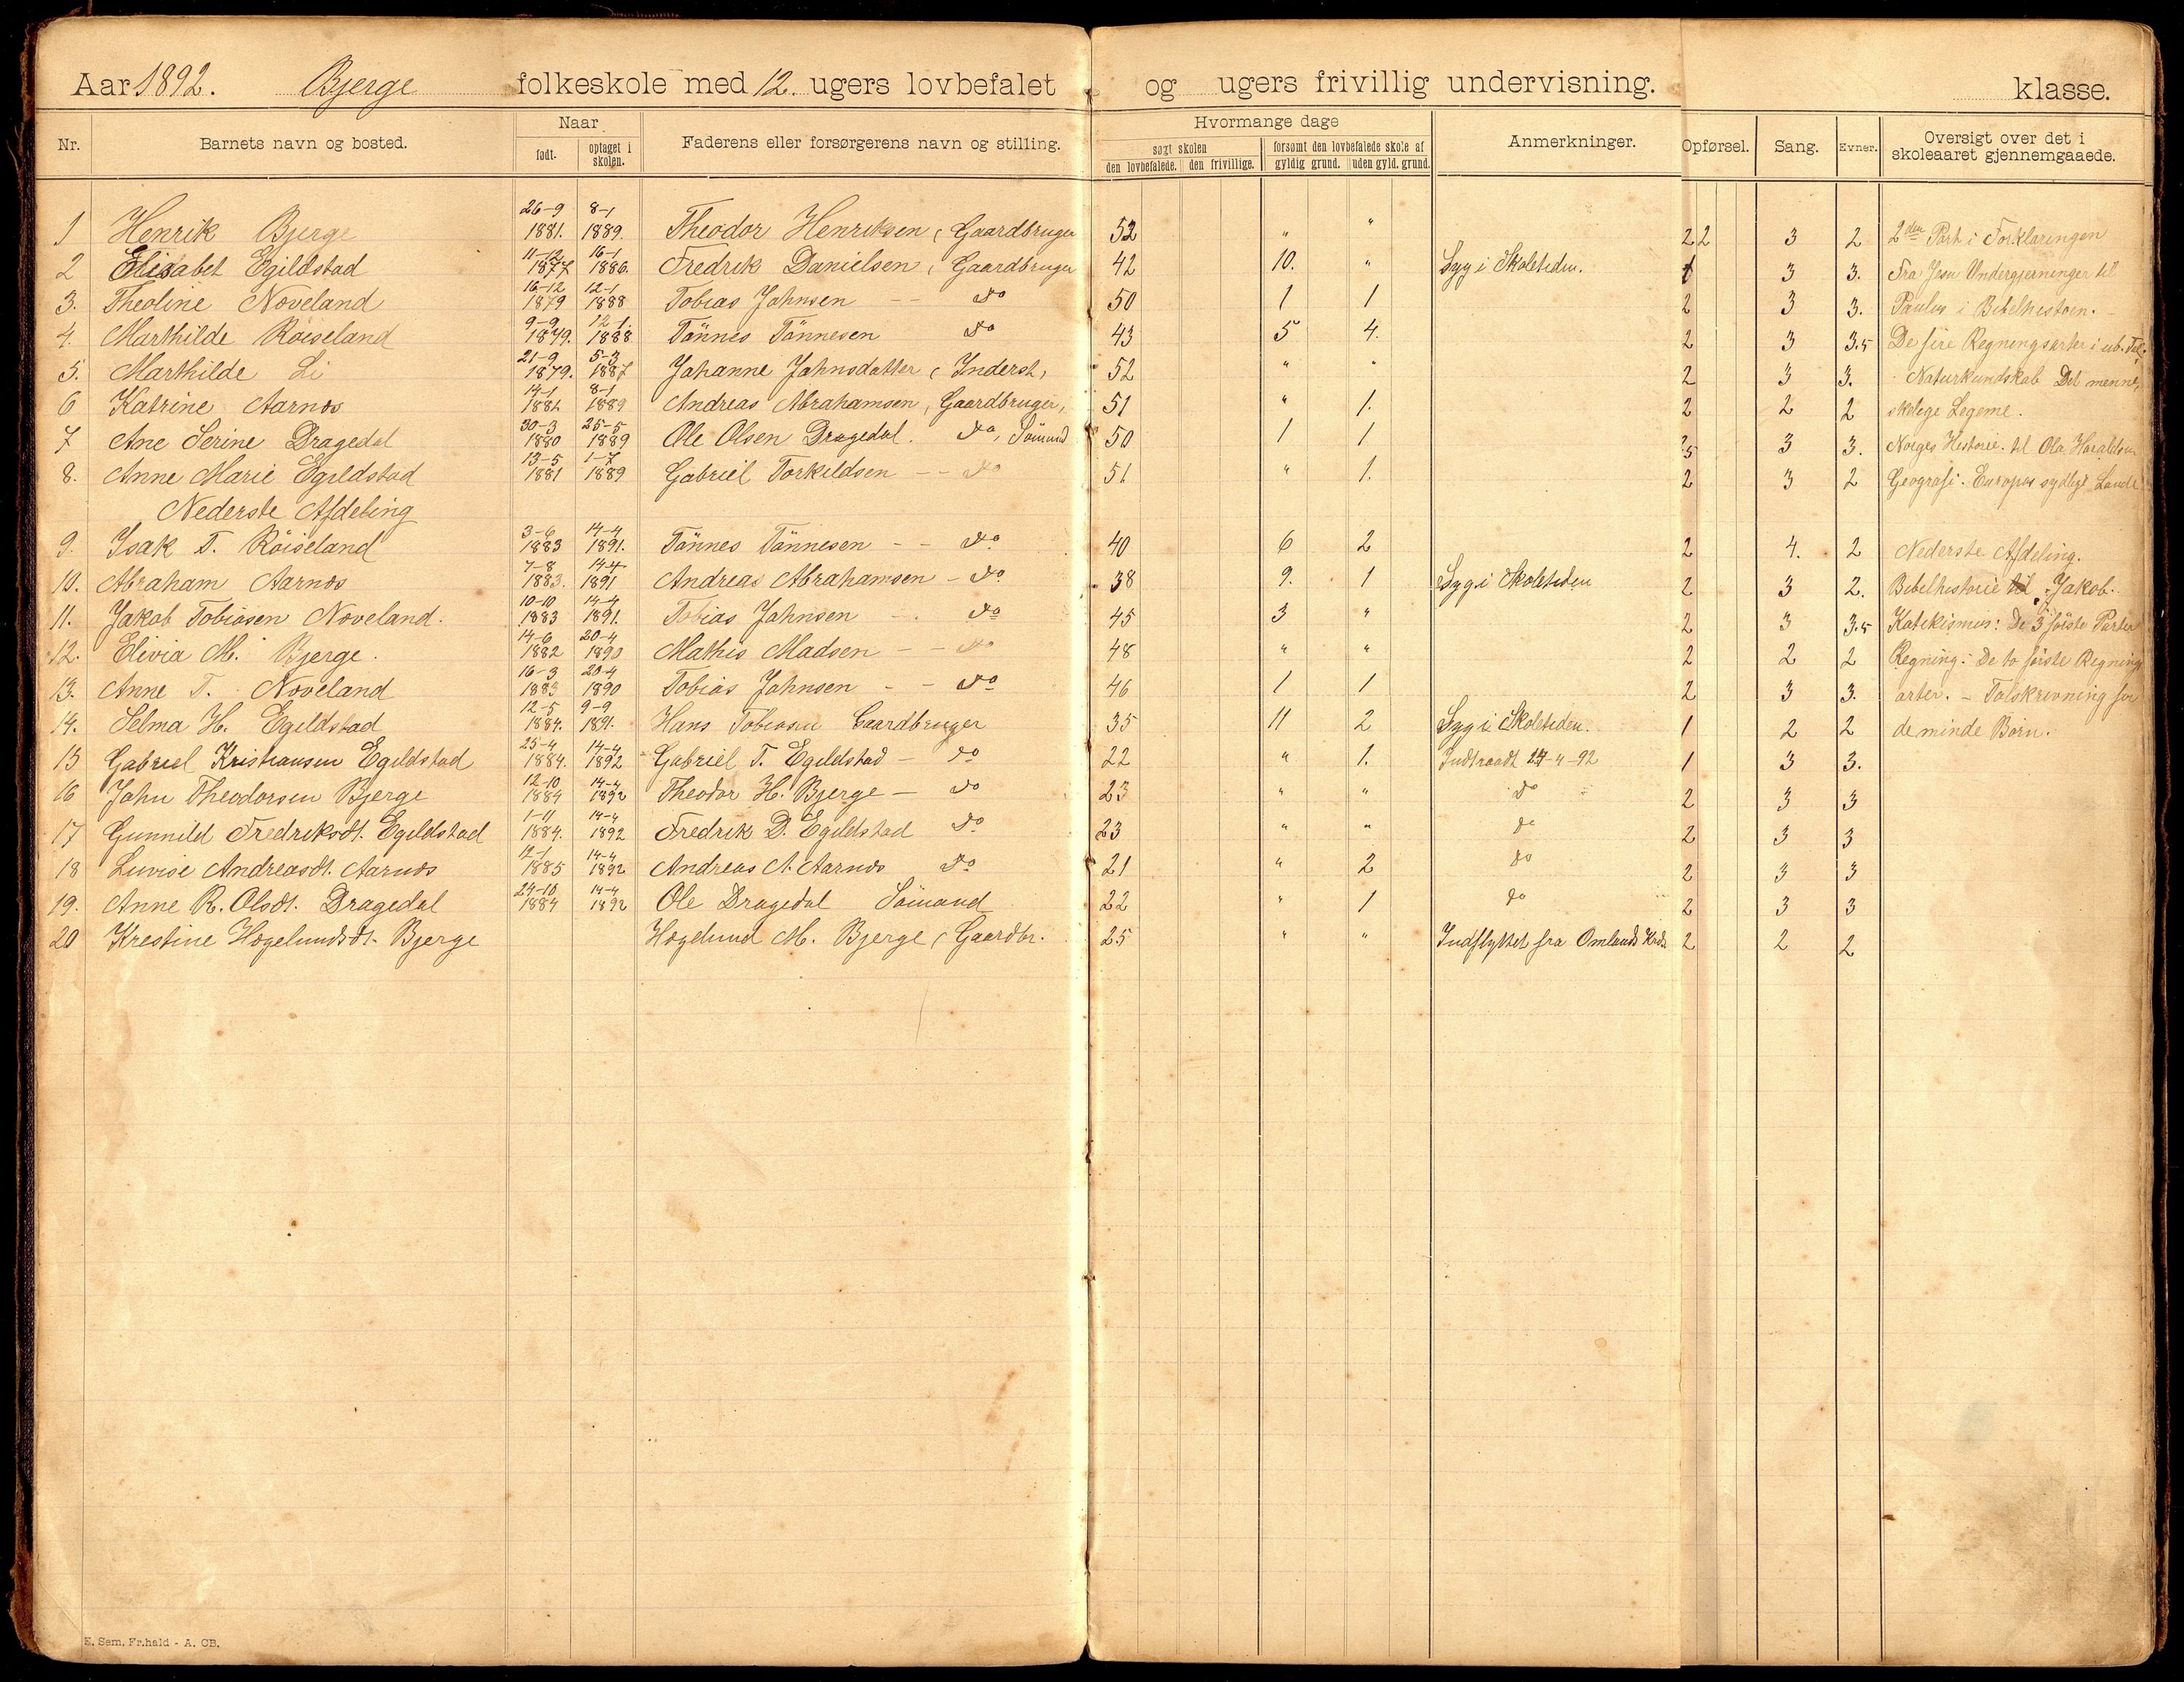 Aar 1892. Bjerge folkeskole med 12. ugers lovbefalet og ugers frivillig undervisning. klasse.
Nr. Barnets navn og bosted. Naar Faderens eller forsørgerens navn og stilling. Hvormange dage Anmerkninger. Opførsel. Sang. Evner. Oversigt over det i skoleaaret gjennemgaaede.
født. optaget i skolen. søgt skolen forsømt den lovbefalede skole af
den lovbefalede. den frivillige. gyldig grund. uden gyld. grund.
1 Henrik Bjerge 26-9 1881. 8-1 1889. Theodor Henriksen, Gaardbruger 52 " " 2 2 3 2 2den Part i Forklaringen
2 Elisabet Egildstad 11-12 1877 16-1 1886. Fredrik Danielsen, Gaardbruger 42 10. " Syg i Skoletiden. 1 3 3. Fra Jesu Undergjerninger til
3. Theoline Noveland 16-12 1879 12-1 1888 Tobias Johnsen -- do 50 1 1 2 3 3. Paulus i Bibelhistorien.
4. Marthilde Röiseland 9-9 1879. 12-1. 1888 Tönnes Tönnesen do 43 5 4. 2 3 3.5 De fire Regningsarter i ub. Tal.
5. Marthilde Li 21-9 1879. 5-3 1887 Johanne Johnsdatter, Inderst, 52 " " 2 3 3. Naturkundskab Det menne-
6 Katrine Aarnes 14-1 1881 8-1 1889 Andreas Abrahamsen, Gaardbruger, 51 " 1. 2 2 2 skelige Legeme.
7 Ane Serine Dragedal 30-3 1880 25-5 1889 Ole Olsen Dragedal. do, Sömand 50 1 1 2.5 3 3. Norges Historie. til Ola Haraldsen
8. Anne Marie Egildstad 13-5 1881 1-7 1889 Gabriel Torkildsen -- do 51 " 1. 2 3 2 Geografi. Europas sydlige Lande
Nederste Afdeling
9. Isak T. Röiseland 3-6 1883 14-4 1891. Tönnes Tönnesen -- do 40 6 2 2 4. 2 Nederste Afdeling.
10. Abraham Aarnes 7-8 1883. 14-4 1891 Andreas Abrahamsen - do 38 9. 1 Syg i Skoletiden 2 3 2. Bibelhistorie til Jakob.
11. Jakob Tobiasen Noveland. 10-10 1883 14-4 1891. Tobias Johnsen -. do 45 3 " 2 3 3.5 Katekismus: De 3 förste Parter
12. Elivia M. Bjerge. 14-6 1882 20-4 1890 Mathis Madsen -- do 48 " " 2 2 2 Regning: De to förste Regnings
13. Anne T. Noveland 16-3 1883 20-4 1890 Tobias Johnsen -- do 46 1 1 2 3 3. arter. - Talskrivning for
14. Selma H. Egildstad 12-5 1884. 9-9 1891. Hans Tobiasen Gaardbruger 35 11 2 Syg i Skoletiden. 1 2 2 de minde Börn.
15 Gabriel Kristiansen Egildstad 25-4 1884. 14-4 1892 Gabriel T. Egildstad - do 22 " 1. Indtraadt 14-4-92 1 3 3.
16 John Theodorsen Bjerge 12-10 1884 14-4 1892 Theodor H. Bjerge - do 23 " " do 2 3 3
17 Gunnild Fredriksdt. Egildstad 1-11 1884. 14-4 1892 Fredrik D. Egildstad do 23 " " do 2 3 3
18 Luvise Andreasdt. Aarnes 12-1 1885 14-4 1892 Andreas A. Aarnes do 21 " 2 do 2 3 3
19. Anne R. Olsdt. Dragedal 24-10 1884 14-4 1892 Ole Dragedal Sömand 22 " 1 do 2 3 3
20 Krestine Hogelundsdt. Bjerge Hogelund M. Bjerge, Gaardbr. 25 " " Indflyttet fra Omlands Kreds 2 2 2
E. Sem, Fr.hald - A. CB.